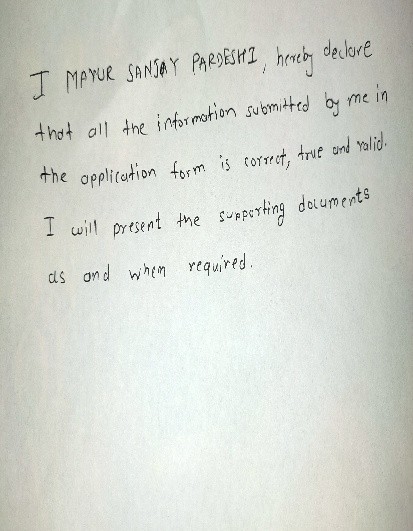 I MAYUR SANJAY PARDESHI, hereby declare
that all the information submitted by me in
the application form is correct, true and valid.
I will present the supporting documents
as and when required.